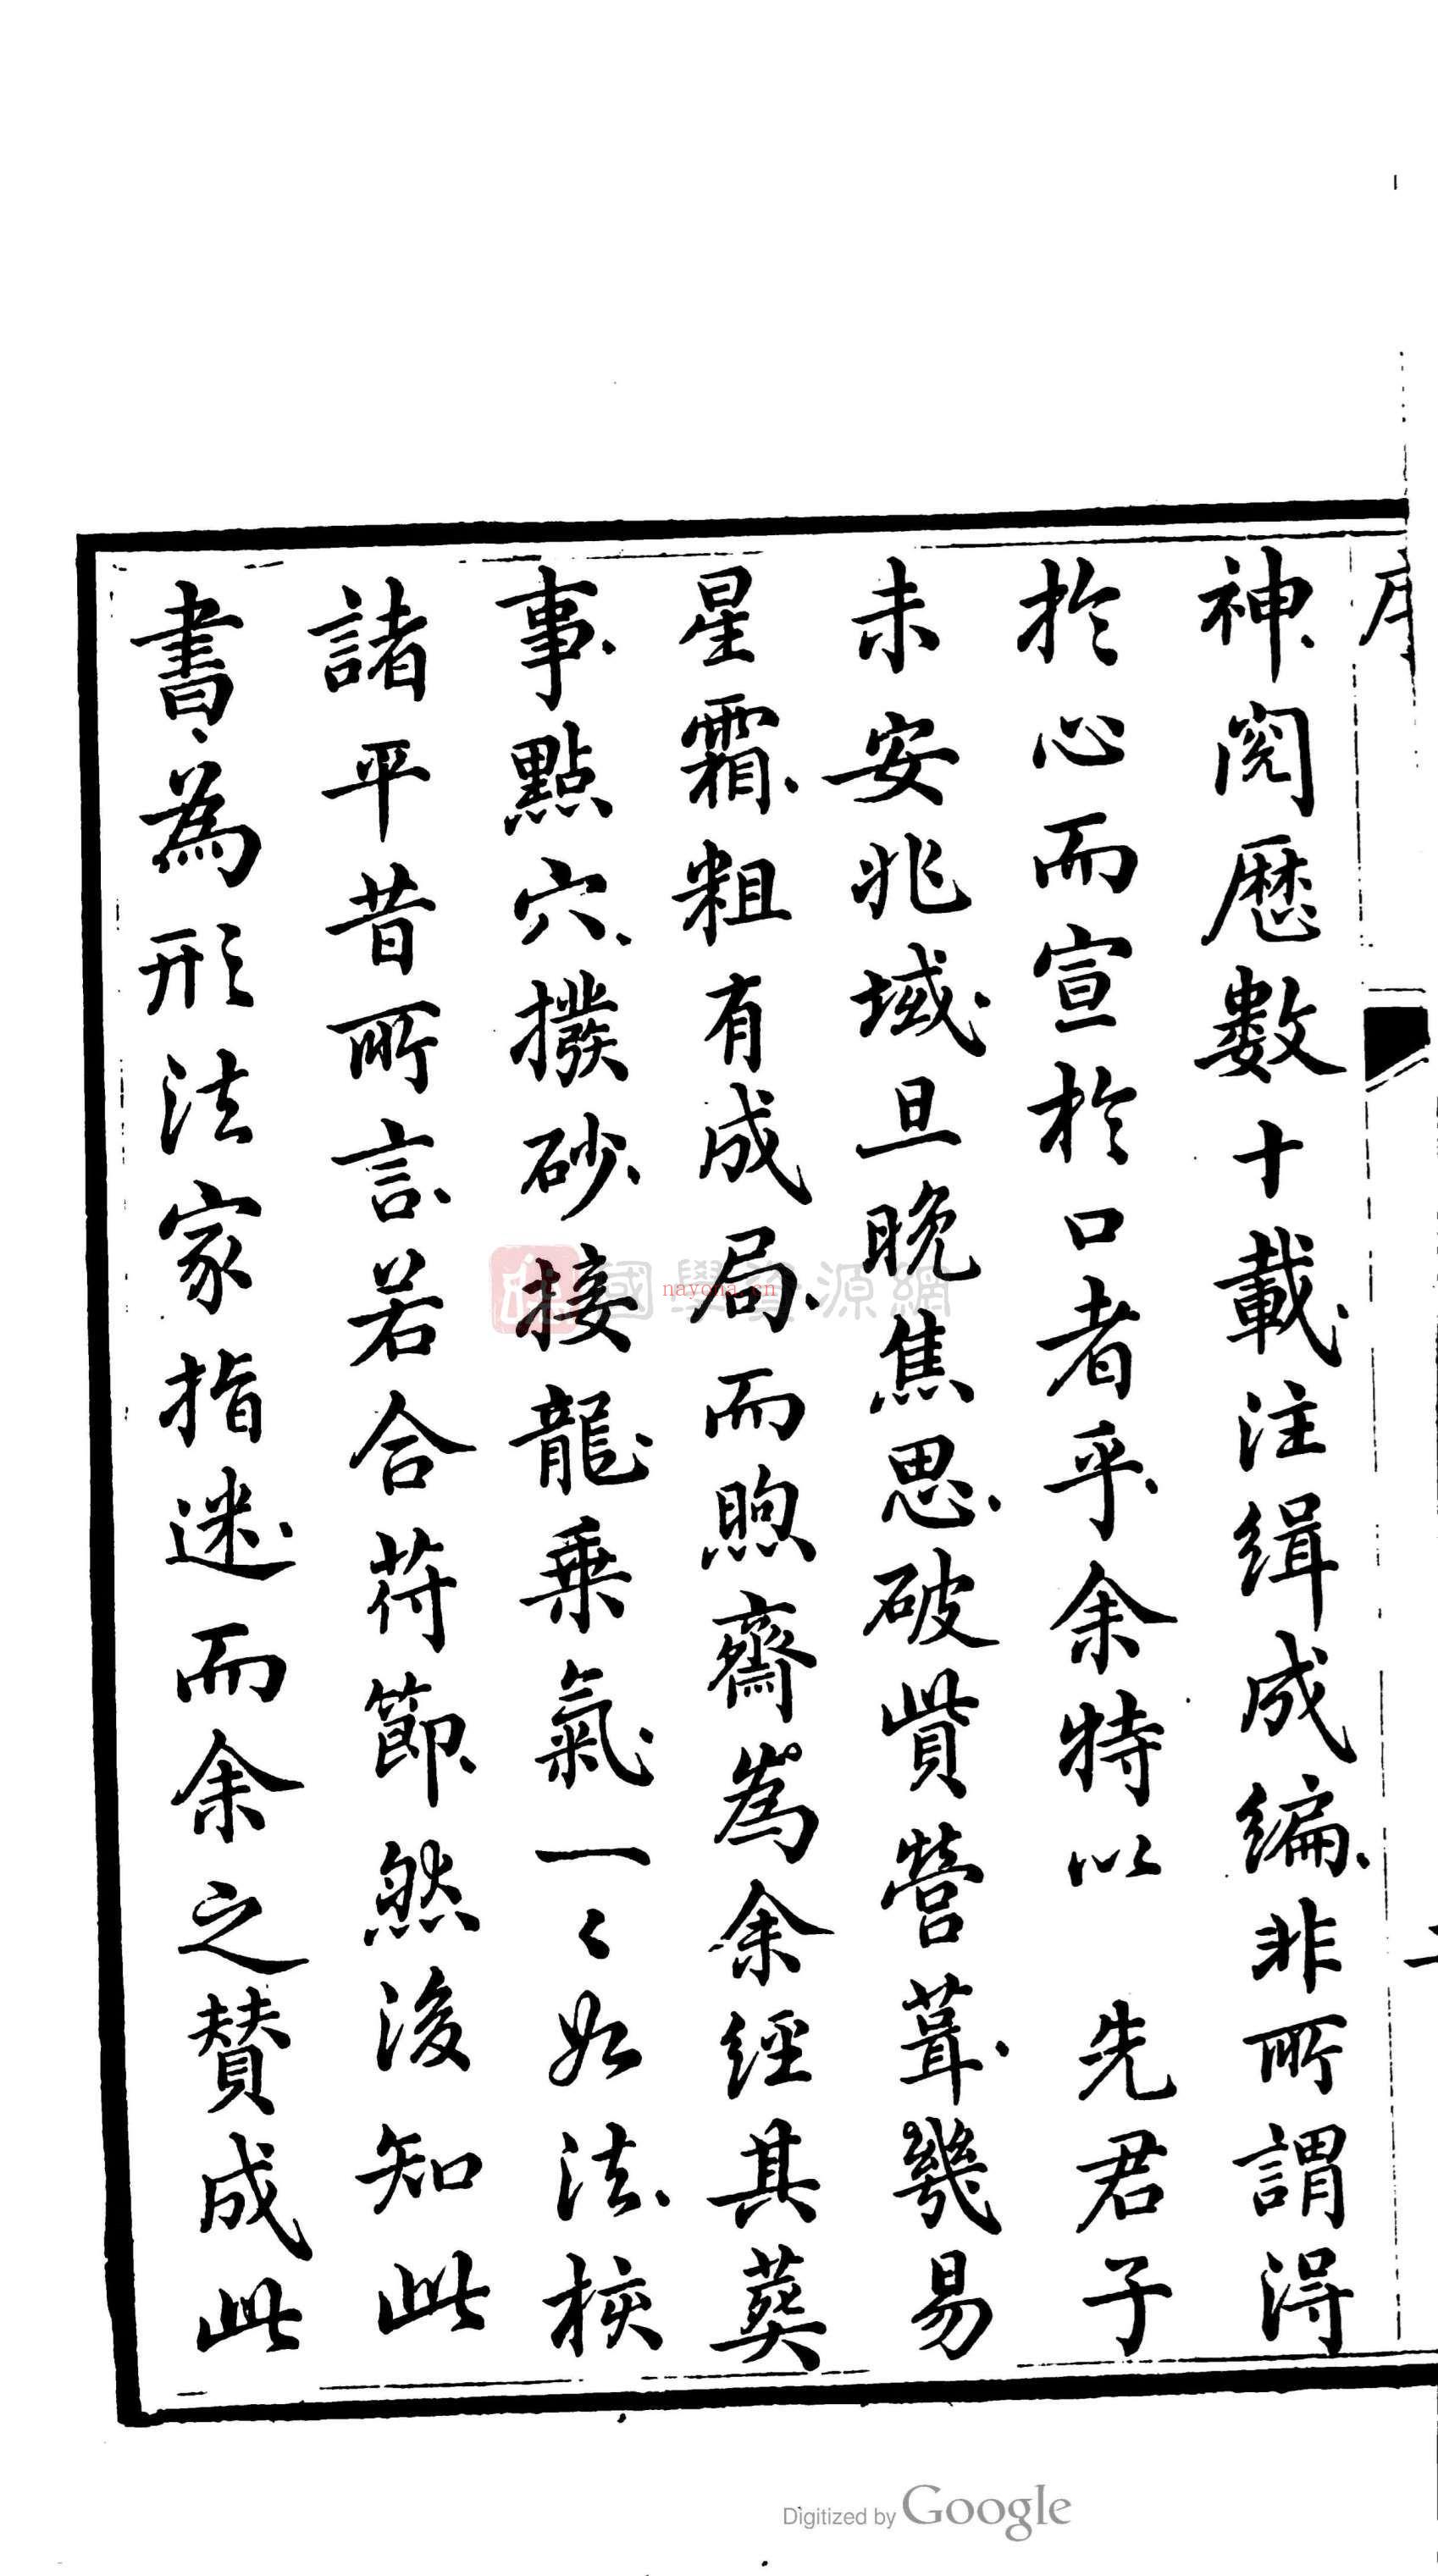 序
神閱歷數十載注緝成編非所謂得
於心而宣於口者乎余特以 先君子
未安兆域旦晚焦思破貲營葺幾易
星霜粗有成局而煦齋為余經其葬
事點穴撥砂接龍乘氣一〻如法核
諸平昔所言若合符節然後知此
書為形法家指迷而余之贊成此
國學資源網
nayona.cn
Digitized by Google